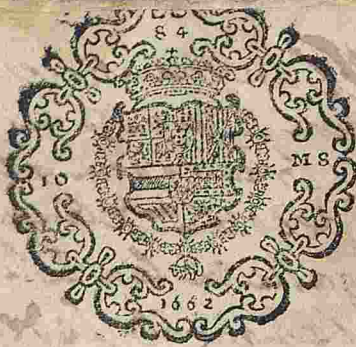 84
10 MS
1662